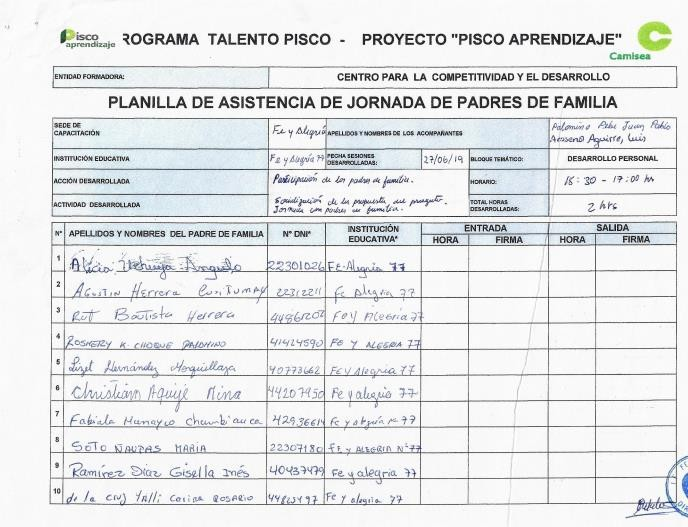 Pisco aprendizaje
PROGRAMA TALENTO PISCO - PROYECTO "PISCO APRENDIZAJE"
Camisea
ENTIDAD FORMADORA: CENTRO PARA LA COMPETITIVIDAD Y EL DESARROLLO
PLANILLA DE ASISTENCIA DE JORNADA DE PADRES DE FAMILIA
SEDE DE CAPACITACIÓN Fe y Alegría APELLIDOS Y NOMBRES DE LOS ACOMPAÑANTES Palomino Juan Pablo
Aguirre, Luis
INSTITUCIÓN EDUCATIVA Fe y Alegría 77 FECHA SESIONES DESARROLLADAS: 27/06/19 BLOQUE TEMÁTICO: DESARROLLO PERSONAL
ACCIÓN DESARROLLADA Participación de los padres de familia. HORARIO: - 17:00 hs
ACTIVIDAD DESARROLLADA Socialización de la propuesta del proyecto.
Jornada con padres de familia. TOTAL HORAS DESARROLLADAS: 2 hrs
N° APELLIDOS Y NOMBRES DEL PADRE DE FAMILIA N° DNI* INSTITUCIÓN EDUCATIVA* ENTRADA SALIDA
HORA FIRMA HORA FIRMA
1 Alicia Angulo 22301026 Fe-Alegria 77
2 AGOSTIN HERRERA 22312211 Fe Alegria 77
3 Rut Bautista Herrera 44861202 Fe y Alegria 77
4 ROSHERY K. CHOQUE PALOMINO 41424590 FE Y ALEGRIA 77
5 Lizet Hernández 40773662 Fe y Alegria 77
6 Christian Aquije Mina 44207950 Fe y alegria 77
7 Fabiola Munayco Chumbiauca 42936614 Fe y alegria N° 77
8 SOTO ÑAUPAS MARIA 22307180 FE y ALEGRIA N° 77
9 Ramírez Diaz Gisella Inés 40437479 Fe y alegria 77
10 de la Cruz Carina ROSARIO 44823497 Fe y alegria 77